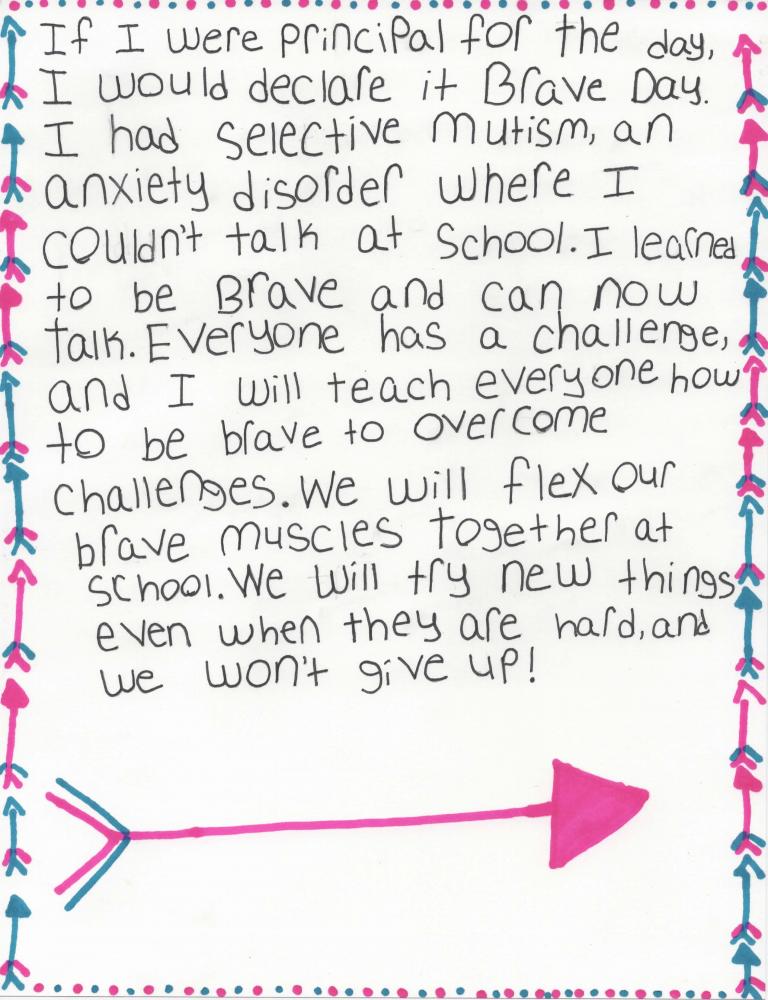 If I were principal for the day,
I would declare it Brave Day.
I had selective mutism, an
anxiety disorder where I
couldn't talk at school. I learned
to be Brave and can now
talk. Everyone has a challenge,
and I will teach everyone how
to be brave to overcome
challenges. We will flex our
brave muscles together at
school. We will try new things
even when they are hard, and
we won't give up!